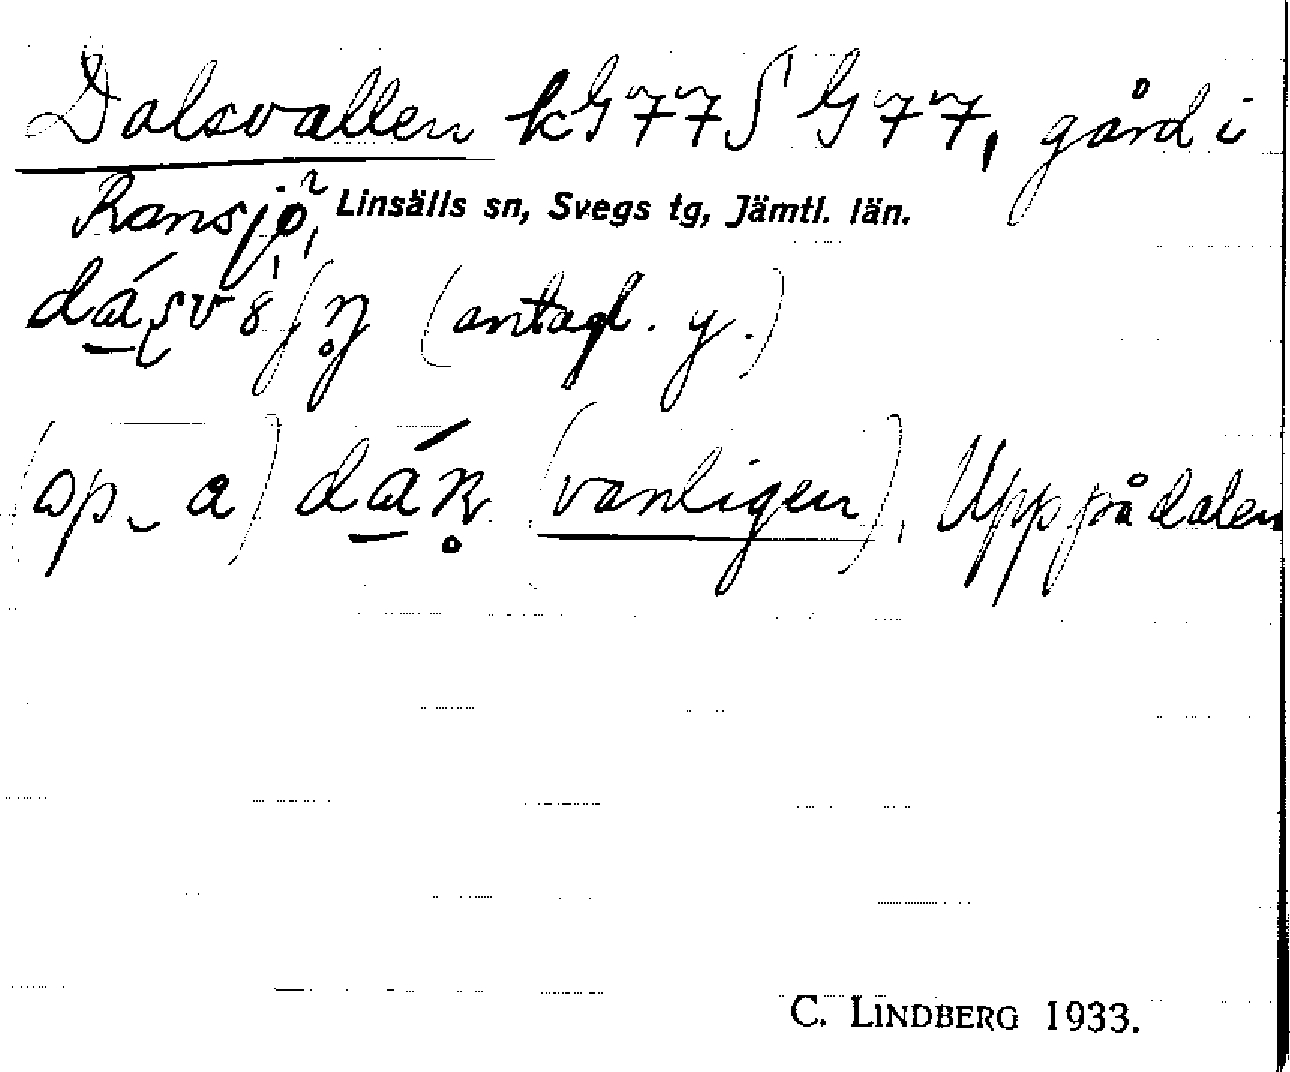 Dalsvallen kG77 S G77, gård i
Ransjö, Linsälls sn, Svegs tg, Jämtl. län.
(antagl. y.)
(sp. a) (vanligen), Upp på dalen
C. LINDBERG 1933.